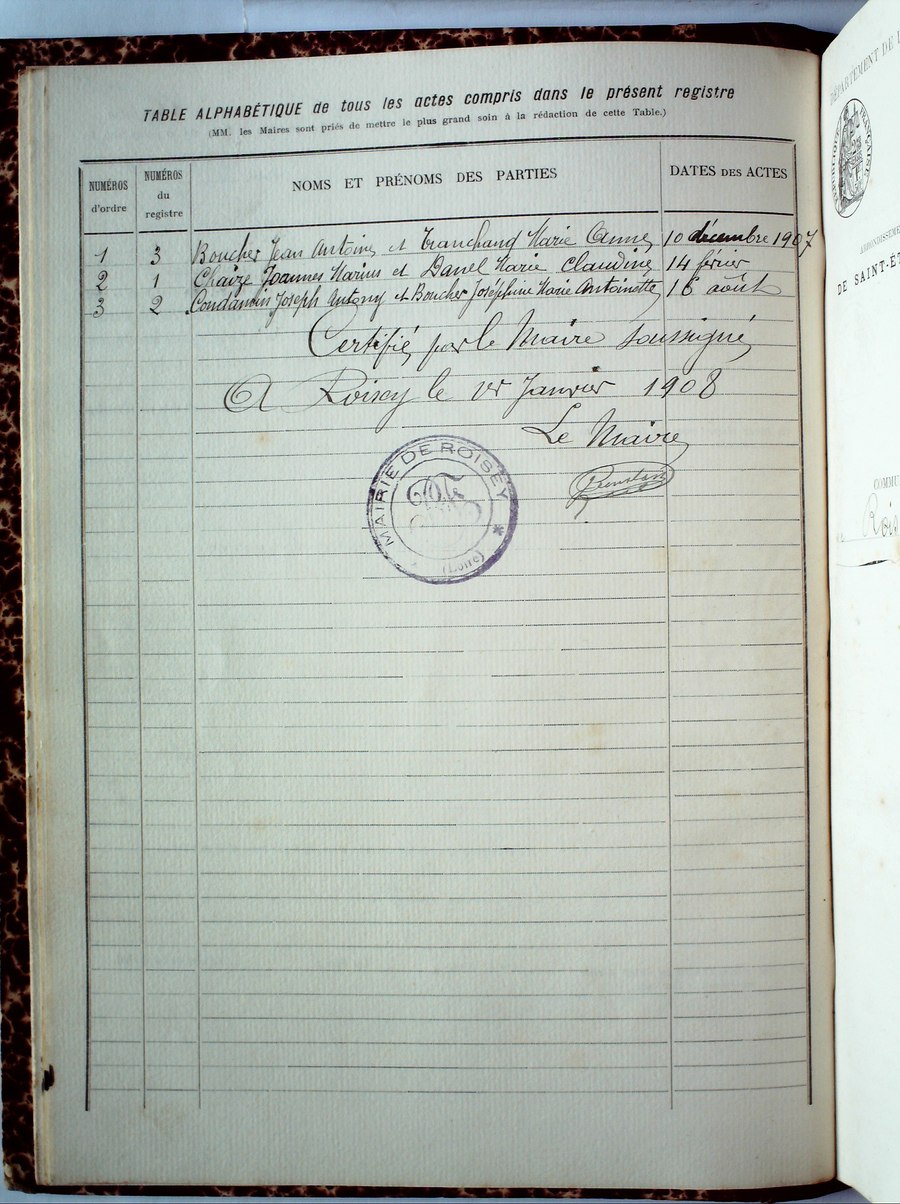 TABLE ALPHABÉTIQUE de tous les actes compris dans le présent registre
(MM. les Maires sont priés de mettre le plus grand soin à la rédaction de cette Table.)
NUMÉROS d'ordre
NUMÉROS du registre
NOMS ET PRÉNOMS DES PARTIES
DATES DES ACTES
1 3 Boucher Jean Antoine et Tranchand Marie Anne 10 décembre 1907
2 1 Chaize Joannes Marius et Danel Marie Claudine 14 férier
3 2 Condamin Joseph Antony et Boucher Joséphine Marie Antoinette 16 août
Certifié par le Maire soussigné
A Roisey le 1er Janvier 1908
Le Maire
MAIRIE DE ROISEY
(Loire)
RF
DÉPARTEMENT DE
RÉPUBLIQUE FRANÇAISE
ARRONDISSEME
DE SAINT-ÉT
COMMU
Rois